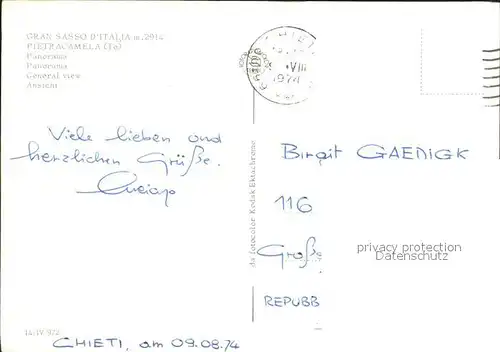 GRAN SASSO D'ITALIA m. 2914
PIETRACAMELA (Te)
Panorama
Panorama
General view
Ansicht
CHIETI
VIII
1974
Viele lieben und
herzlichen Grüße.
Luciano
da fotocolor Kodak Ektachrome
Birgit GAEDIGK
116
Große
REPUBB
privacy protection
Datenschutz
14.IV.972
CHIETI, am 09.08.74